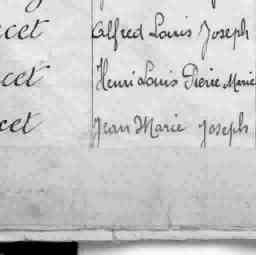 cet Alfred Louis Joseph
cet Henri Louis Pierre Marie
cet Jean Marie Joseph